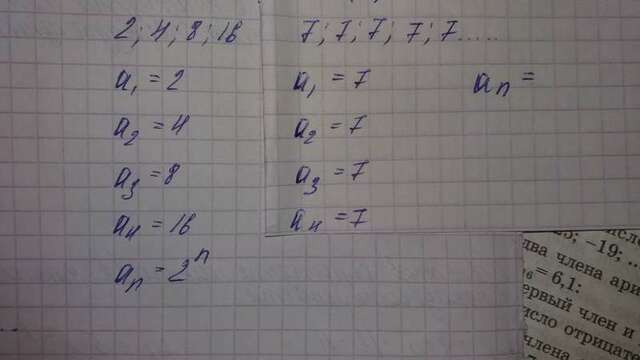 2; 4; 8; 16
a₁ = 2
a₂ = 4
a₃ = 8
a₄ = 16
aₙ = 2ⁿ
7; 7; 7; 7; 7.....
a₁ = 7
a₂ = 7
a₃ = 7
a₄ = 7
aₙ =
–19; ..
два члена ари
= 6,1:
ервый член и
исло отрицат
члена